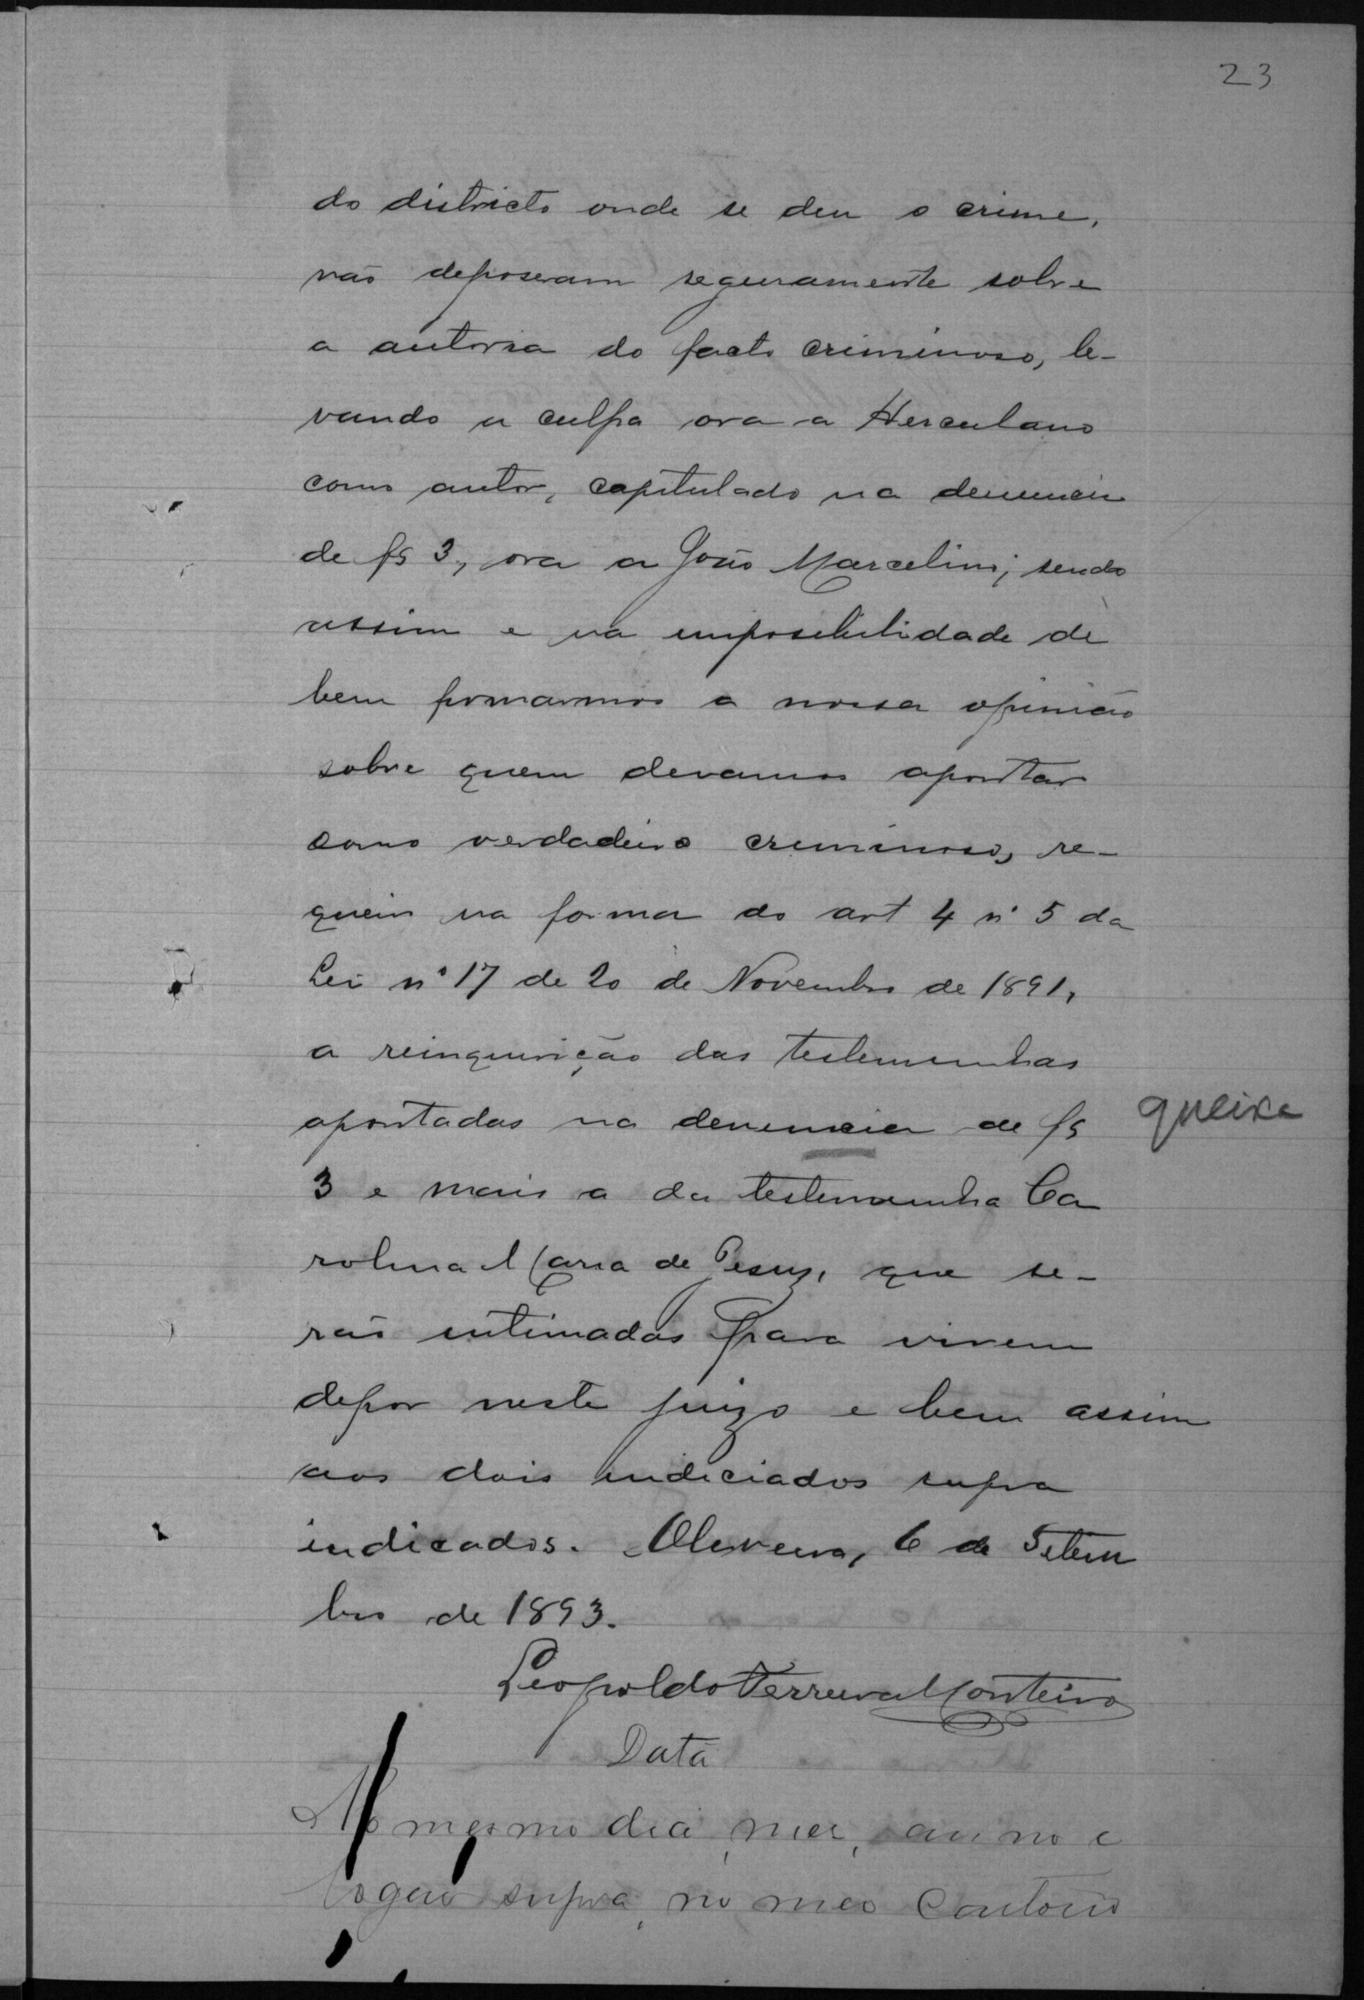 23
do districto onde se deu o crime,
não deposeram seguramente sobre
a autoria do facto criminoso, le-
vando a culpa ora a Herculano
como autor, capitulado na denuncia
de fs 3, ora a João Marcelino; sendo
assim e na imposibilidade de
bem formarmos a nossa opinião
sobre quem devamos apontar
como verdadeiro criminoso, re-
queiro na forma do art 4 nº 5 da
Lei nº 17 de 20 de Novembro de 1891,
a reinquirição das testemunhas
apontadas na denuncia de fs
queixa
3 e mais a da testemunha Ca
rolina Maria de Jesuz, que se-
rão intimadas para virem
depor neste juizo e bem assim
aos dois indiciados supra
indicados. Oliveira, 6 de Setem
bro de 1893.
Leopoldo Ferreira Monteiro
Data
No mesmo dia, mez, anno e
logar supra, no meo Cartorio